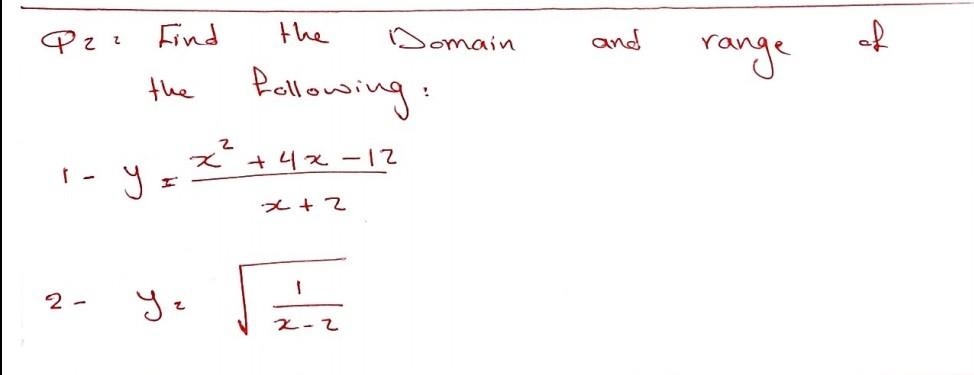 Q2: Find the Domain and range of
the following:
1- y = x² + 4x - 12 / x + 2
2- y = √1 / x - 2